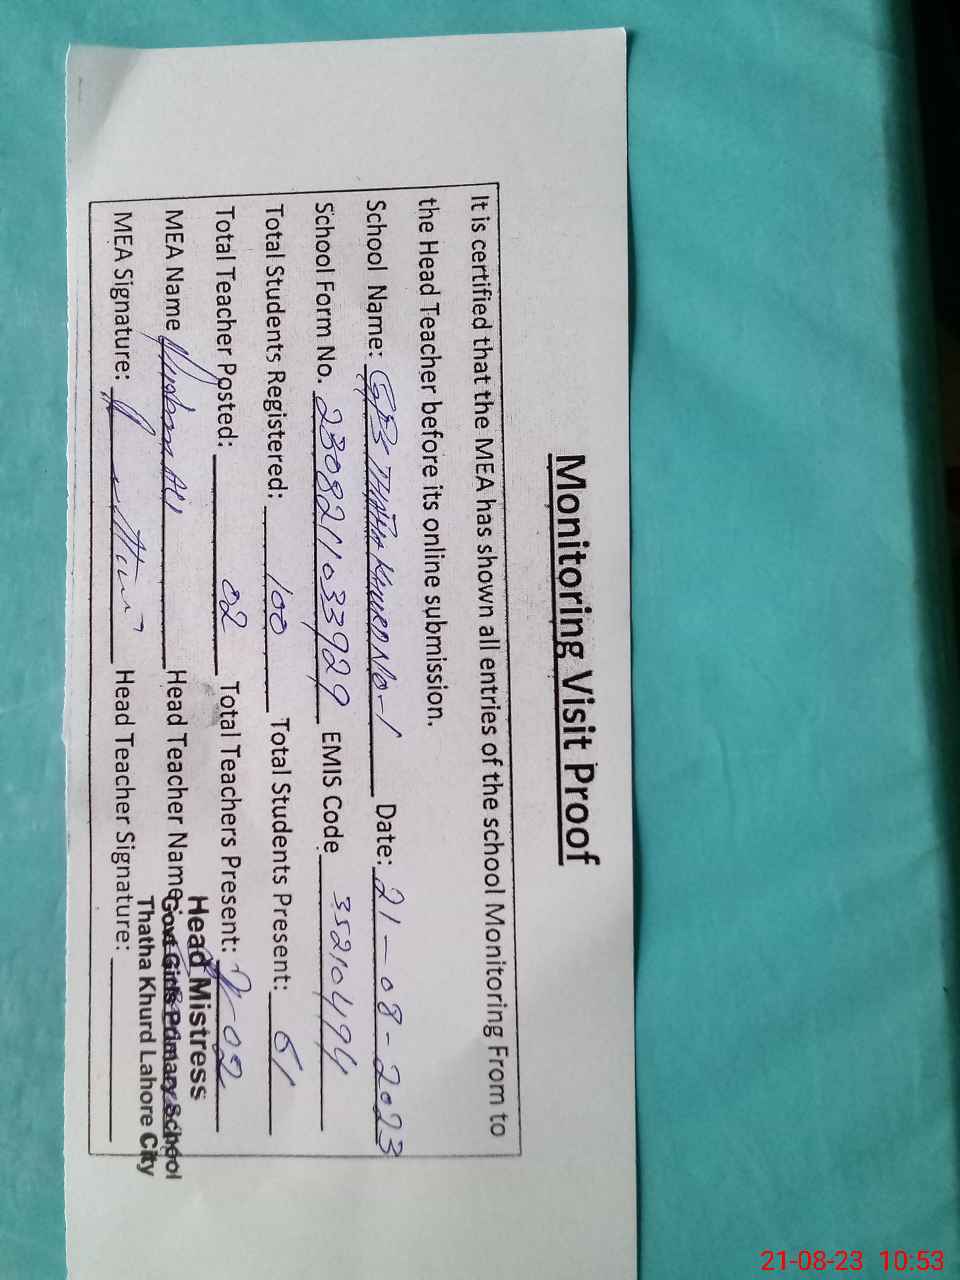 Monitoring Visit Proof
It is certified that the MEA has shown all entries of the school Monitoring From to
the Head Teacher before its online submission.
School Name: GPS THATHA KHURD No-1 Date: 21-08-2023
School Form No. 2308211033929 EMIS Code 35210494
Total Students Registered: 100 Total Students Present: 51
Total Teacher Posted: 02 Total Teachers Present: 02
MEA Name Ali Head Teacher Name:
MEA Signature: Head Teacher Signature:
Head Mistress
Govt Girls Primary School
Thatha Khurd Lahore City
21-08-23 10:53